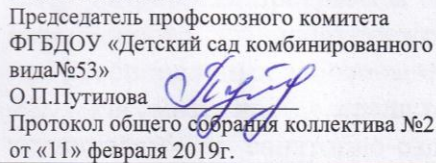 Председатель профсоюзного комитета
ФГБДОУ «Детский сад комбинированного
вида№53»
О.П.Путилова_______________
Протокол общего собрания коллектива №2
от «11» февраля 2019г.